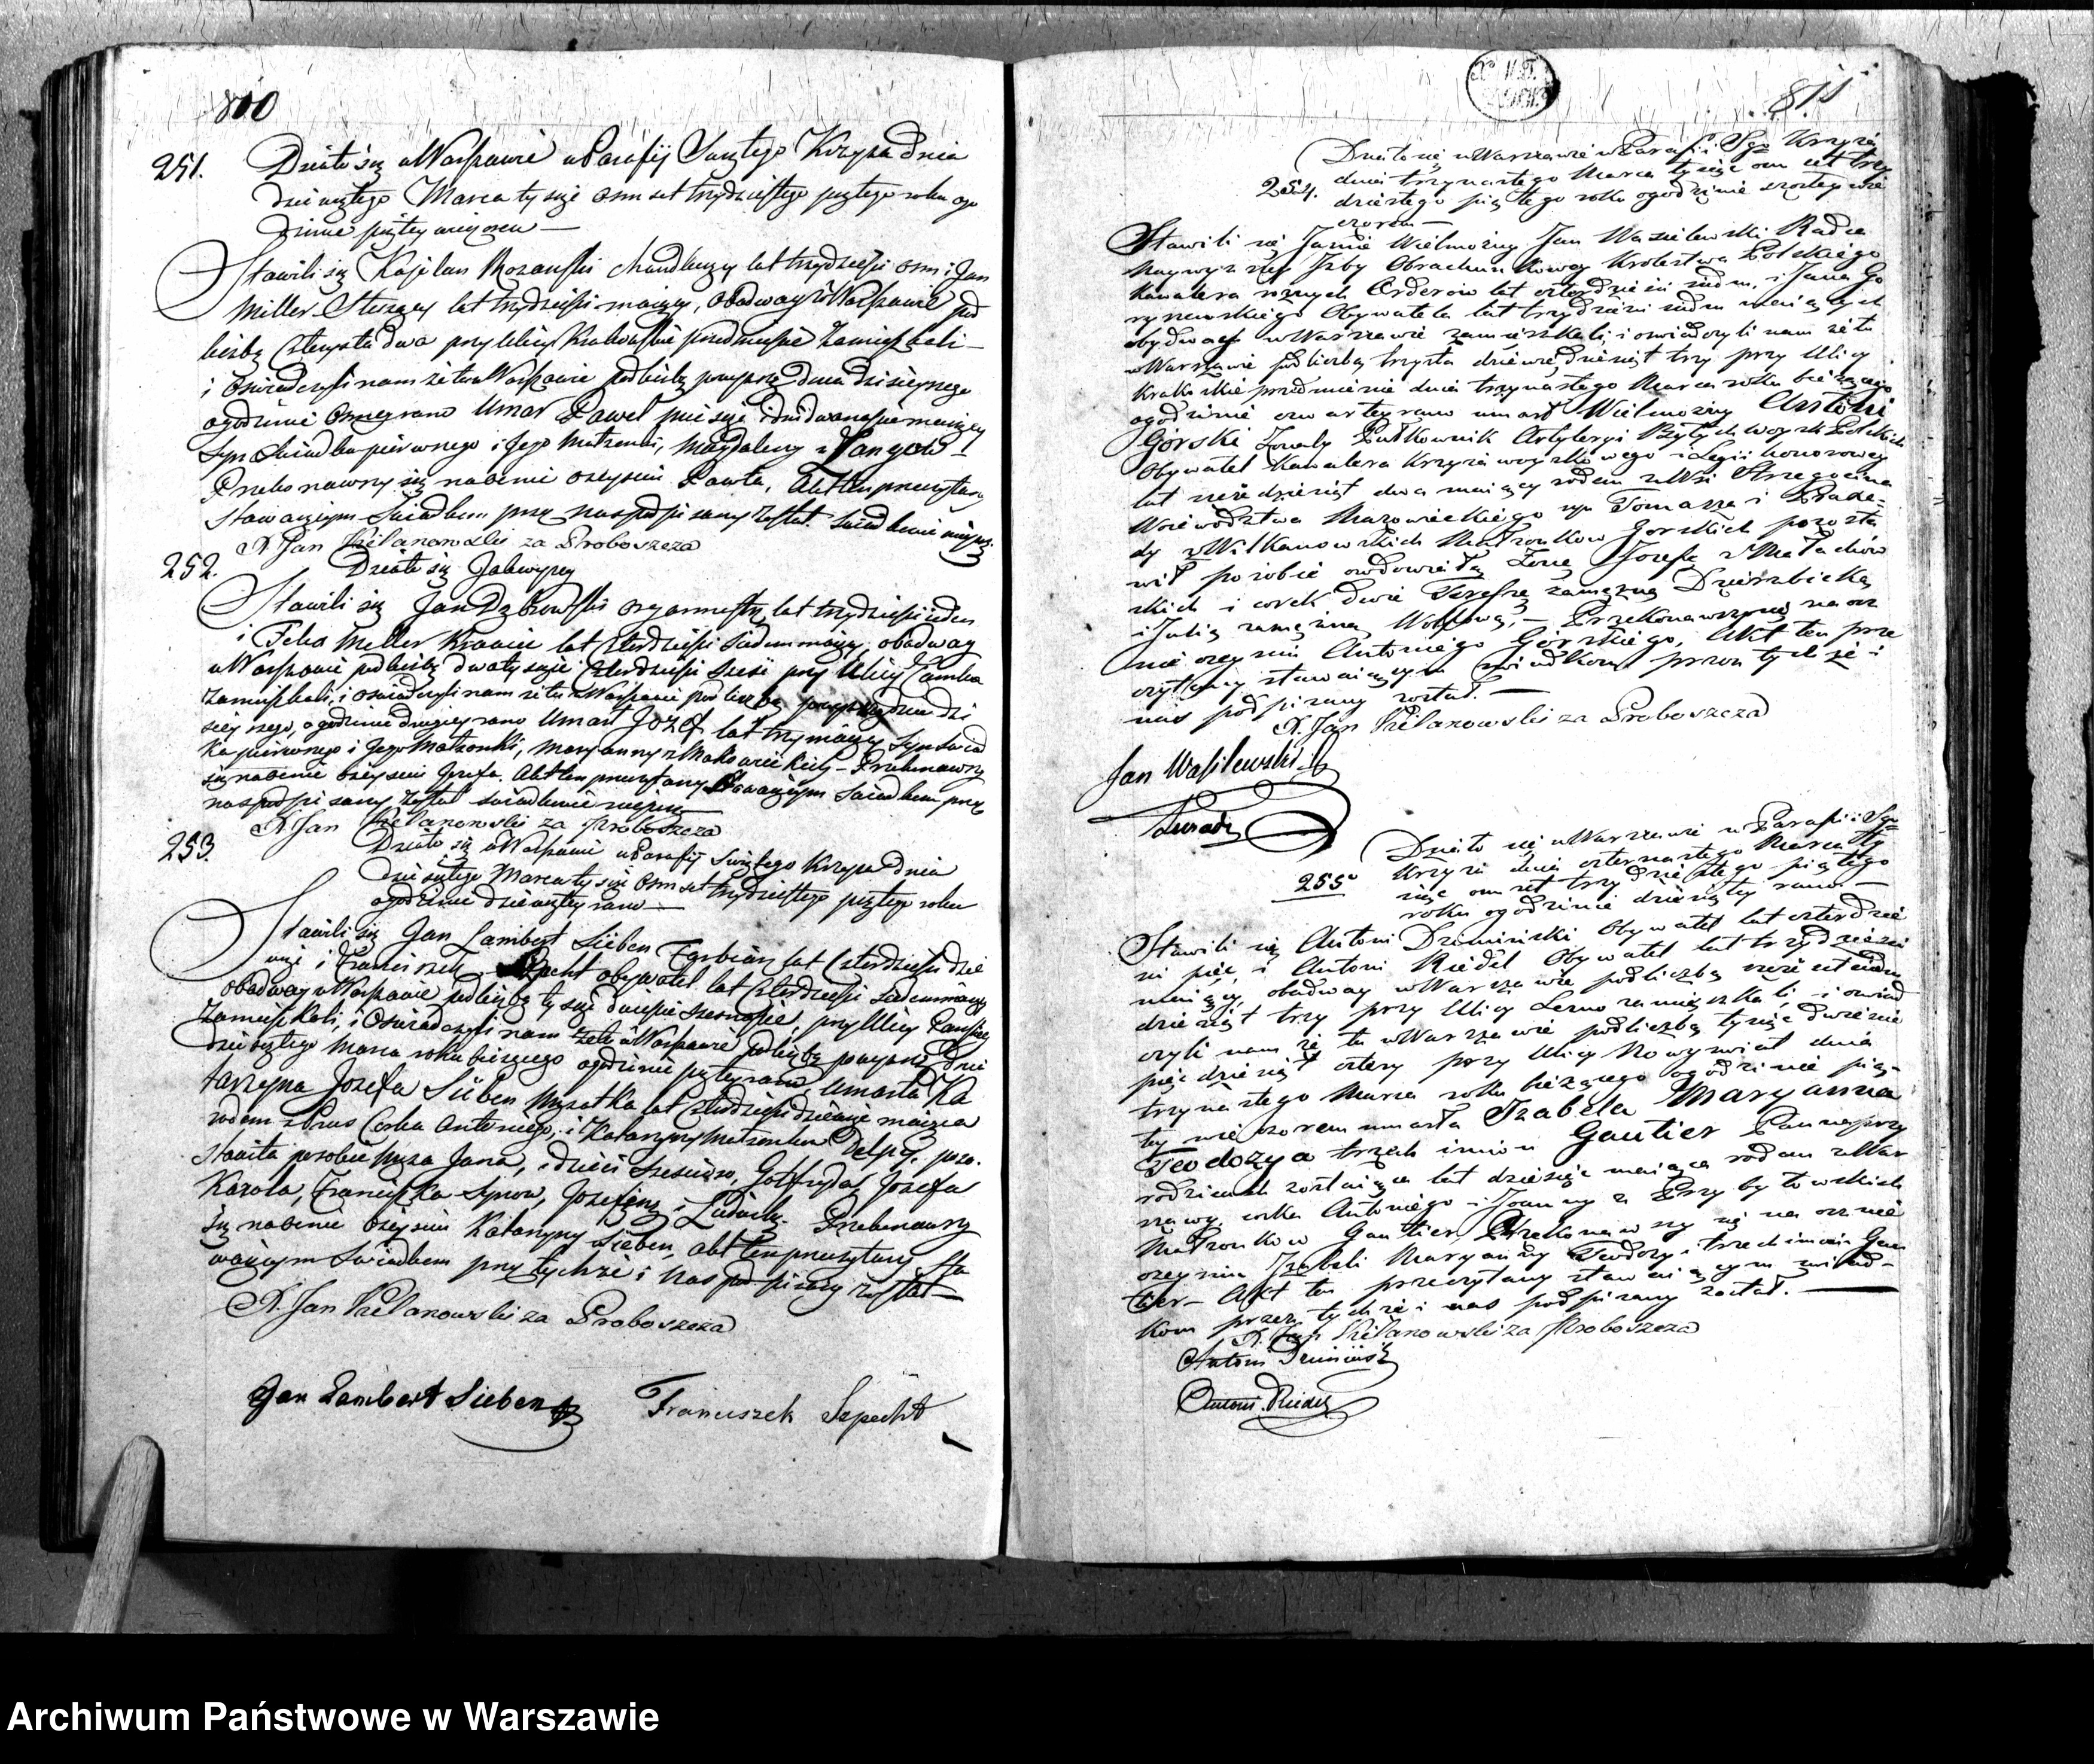 800
251. Działo się w Warszawie w Parafij Swiętego Krzyża dnia
dziewiątego Marca tysiąc osmset trzydziestego piątego roku ogo
dzinie piątey wieczorem —
Stawili się Kajetan Rozanski lat trzydzieści osm i Jan
Miller Stuzący lat trzydzieści maiący, obadway w Warszawie pod
liczbą czterysta dwa przy Ulicy Krakowskie przedmieście zamieszkali —
i oświadczyli nam że tu w Warszawie pod liczbą powyższą dnia dzisieyszego
ogodzinie osmey rano Umarł Paweł miesięcy dwanaście maiący
Syn Swiadka pierwszego i Jego Małżonki, Magdaleny z Langow —
Przekonawszy się naocznie o zeysciu Pawła, Akt ten przeczytany
Stawaiącym Swiadkom przez nas podpisany został. Swiadkowie nie piszą.
X. Jan za Proboszcza
252. Działo się Jak wyzey
Stawili się Jan Dąbrowski organmistrz lat trzydzieści ieden
i Meller Krawiec lat czterdzieści siedem maiący, obadway
w Warszawie pod liczbą dwa tysiące czterdzieści sześć przy Ulicy Tamka
zamieszkali, i oświadczyli nam że tu w Warszawie pod liczbą powyższą dnia dzi
sieyszego, ogodzinie drugiey rano Umarł Jozef lat trzy maiący Syn Swiad
ka pierwszego i Jego Małżonki, Maryanny z Makowieckich — Przekonawszy
się naocznie o zeysciu Jozefa. Akt ten przeczytany Stawaiącym Swiadkom przez
nas podpisany został swiadkowie nie piszą
X. Jan za Proboszcza
253. Działo się w Warszawie w Parafij Swiętego Krzyża dnia
Marca tysiąc osmset trzydziestego piątego roku
ogodzinie dziewiątey rano —
Stawili się Jan Lambert Sieben Farbiarz lat czterdzieści dzie
więć i Franciszek Szpecht obywatel lat czterdzieści siedem maiący
obadway w Warszawie pod liczbą tysiąc dwieście szesnaście, przy Ulicy Pańskiey
zamieszkali, i oświadczyli nam że tu w Warszawie pod liczbą powyższą dnia
dziewiątego Marca roku bieżącego ogodzinie piątey rano Umarła Ka
tarzyna Jozefa Sieben Mężatka lat czterdzieści dziewięć maiąca
rodem z Prus Corka Antoniego, i Katarzyny Małżonkow Delpęs. pozo.
stawiła po sobie Męża Jana, i dzieci sześcioro, Gotfryda, Jozefa
Karola, Franciszka Synow, Jozefinę i Ludwikę. Przekonawszy
się naocznie o zeysciu Katarzyny Sieben, Akt ten przeczytany Sta
waiącym Swiadkom przez tychże i nas podpisany został —
X. Jan za Proboszcza
Jan Lambert Sieben Franciszek Szpecht
811
Działo się w Warszawie w Parafii Sgo Krzyża
dnia trzynastego Marca tysiąc osmset trzy
254. dziestego piątego roku ogodzinie szostey wie
czorem —
Stawili się Jaśnie Wielmożny Jan Wasilewski Radca
Naywyższey Izby Obrachunkowey Krolestwa Polskiego
Kawalera roznych Orderow lat czterdzieści siedm, i Jana Go
rynewskiego Obywatela lat trzydzieści siedm maiących
obydway w Warszawie zamieszkali; i oświadczyli nam że tu
w Warszawie pod liczbą trzysta dziewięćdziesiąt trzy przy Ulicy
Krakowskie przedmieście dnia trzynastego Marca roku bieżącego
ogodzinie czwartey rano umarł Wielmożny Antoni
Górski Pułkownik Artyleryi Byłych woysk Polskich
Obywatel Kawalera Krzyża woyskowego i Legii honorowey
lat sześćdziesiąt dwa maiący rodem z Wsi Strzegocina
Woiewodztwa Mazowieckiego syn Tomasza i
dy z Wilkanowskich Małżonkow Gorskich pozosta
wił po sobie owdowiałą Zonę Jozefę z Małachow
skich i corek dwie Teressę zamężną Dzierzbicką
i Julią zamężną — Przekonawszy się naocz
nie o zeysciu Antoniego Górskiego, Akt ten prze
czytany stawaiącym swiadkom przez tychże i
nas podpisany został. —
X. Jan za Proboszcza
Jan Wasilewski
Działo się w Warszawie w Parafii Sgo
Krzyża dnia czternastego Marca ty
255 siąc osmset trzydziestego piątego
roku ogodzinie dziesiątey rano —
Stawili się Antoni Dziminski Obywatel lat czterdzie
ści pięć, i Antoni Riedel Obywatel lat trzydzieści
maiący, obadway w Warszawie pod liczbą sześćset siedm
dziesiąt trzy przy Ulicy Leszno zamieszkali, i oświad
czyli nam że tu w Warszawie pod liczbą tysiąc dwieście
pięćdziesiąt cztery przy Ulicy Nowy świat dnia
trzynastego Marca roku bieżącego ogodzinie pią
tey wieczorem umarła Izabela Maryanna
Teodozya trzech imion Gautier Panna przy
rodzicach zostaiąca lat dziesięć maiąca rodem z War
szawy, corka Antoniego i Joanny z Przybytowskich
Małżonkow Gautier, Przekonawszy się naocznie
o zeysciu Izabeli Maryanny Teodozyi trzech imion Gau
tier — Akt ten przeczytany stawaiącym swiad-
kom przez tychże i nas podpisany został. —
X. Jan za Proboszcza
Antoni Dziminski
Antoni Riedel
Archiwum Państwowe w Warszawie